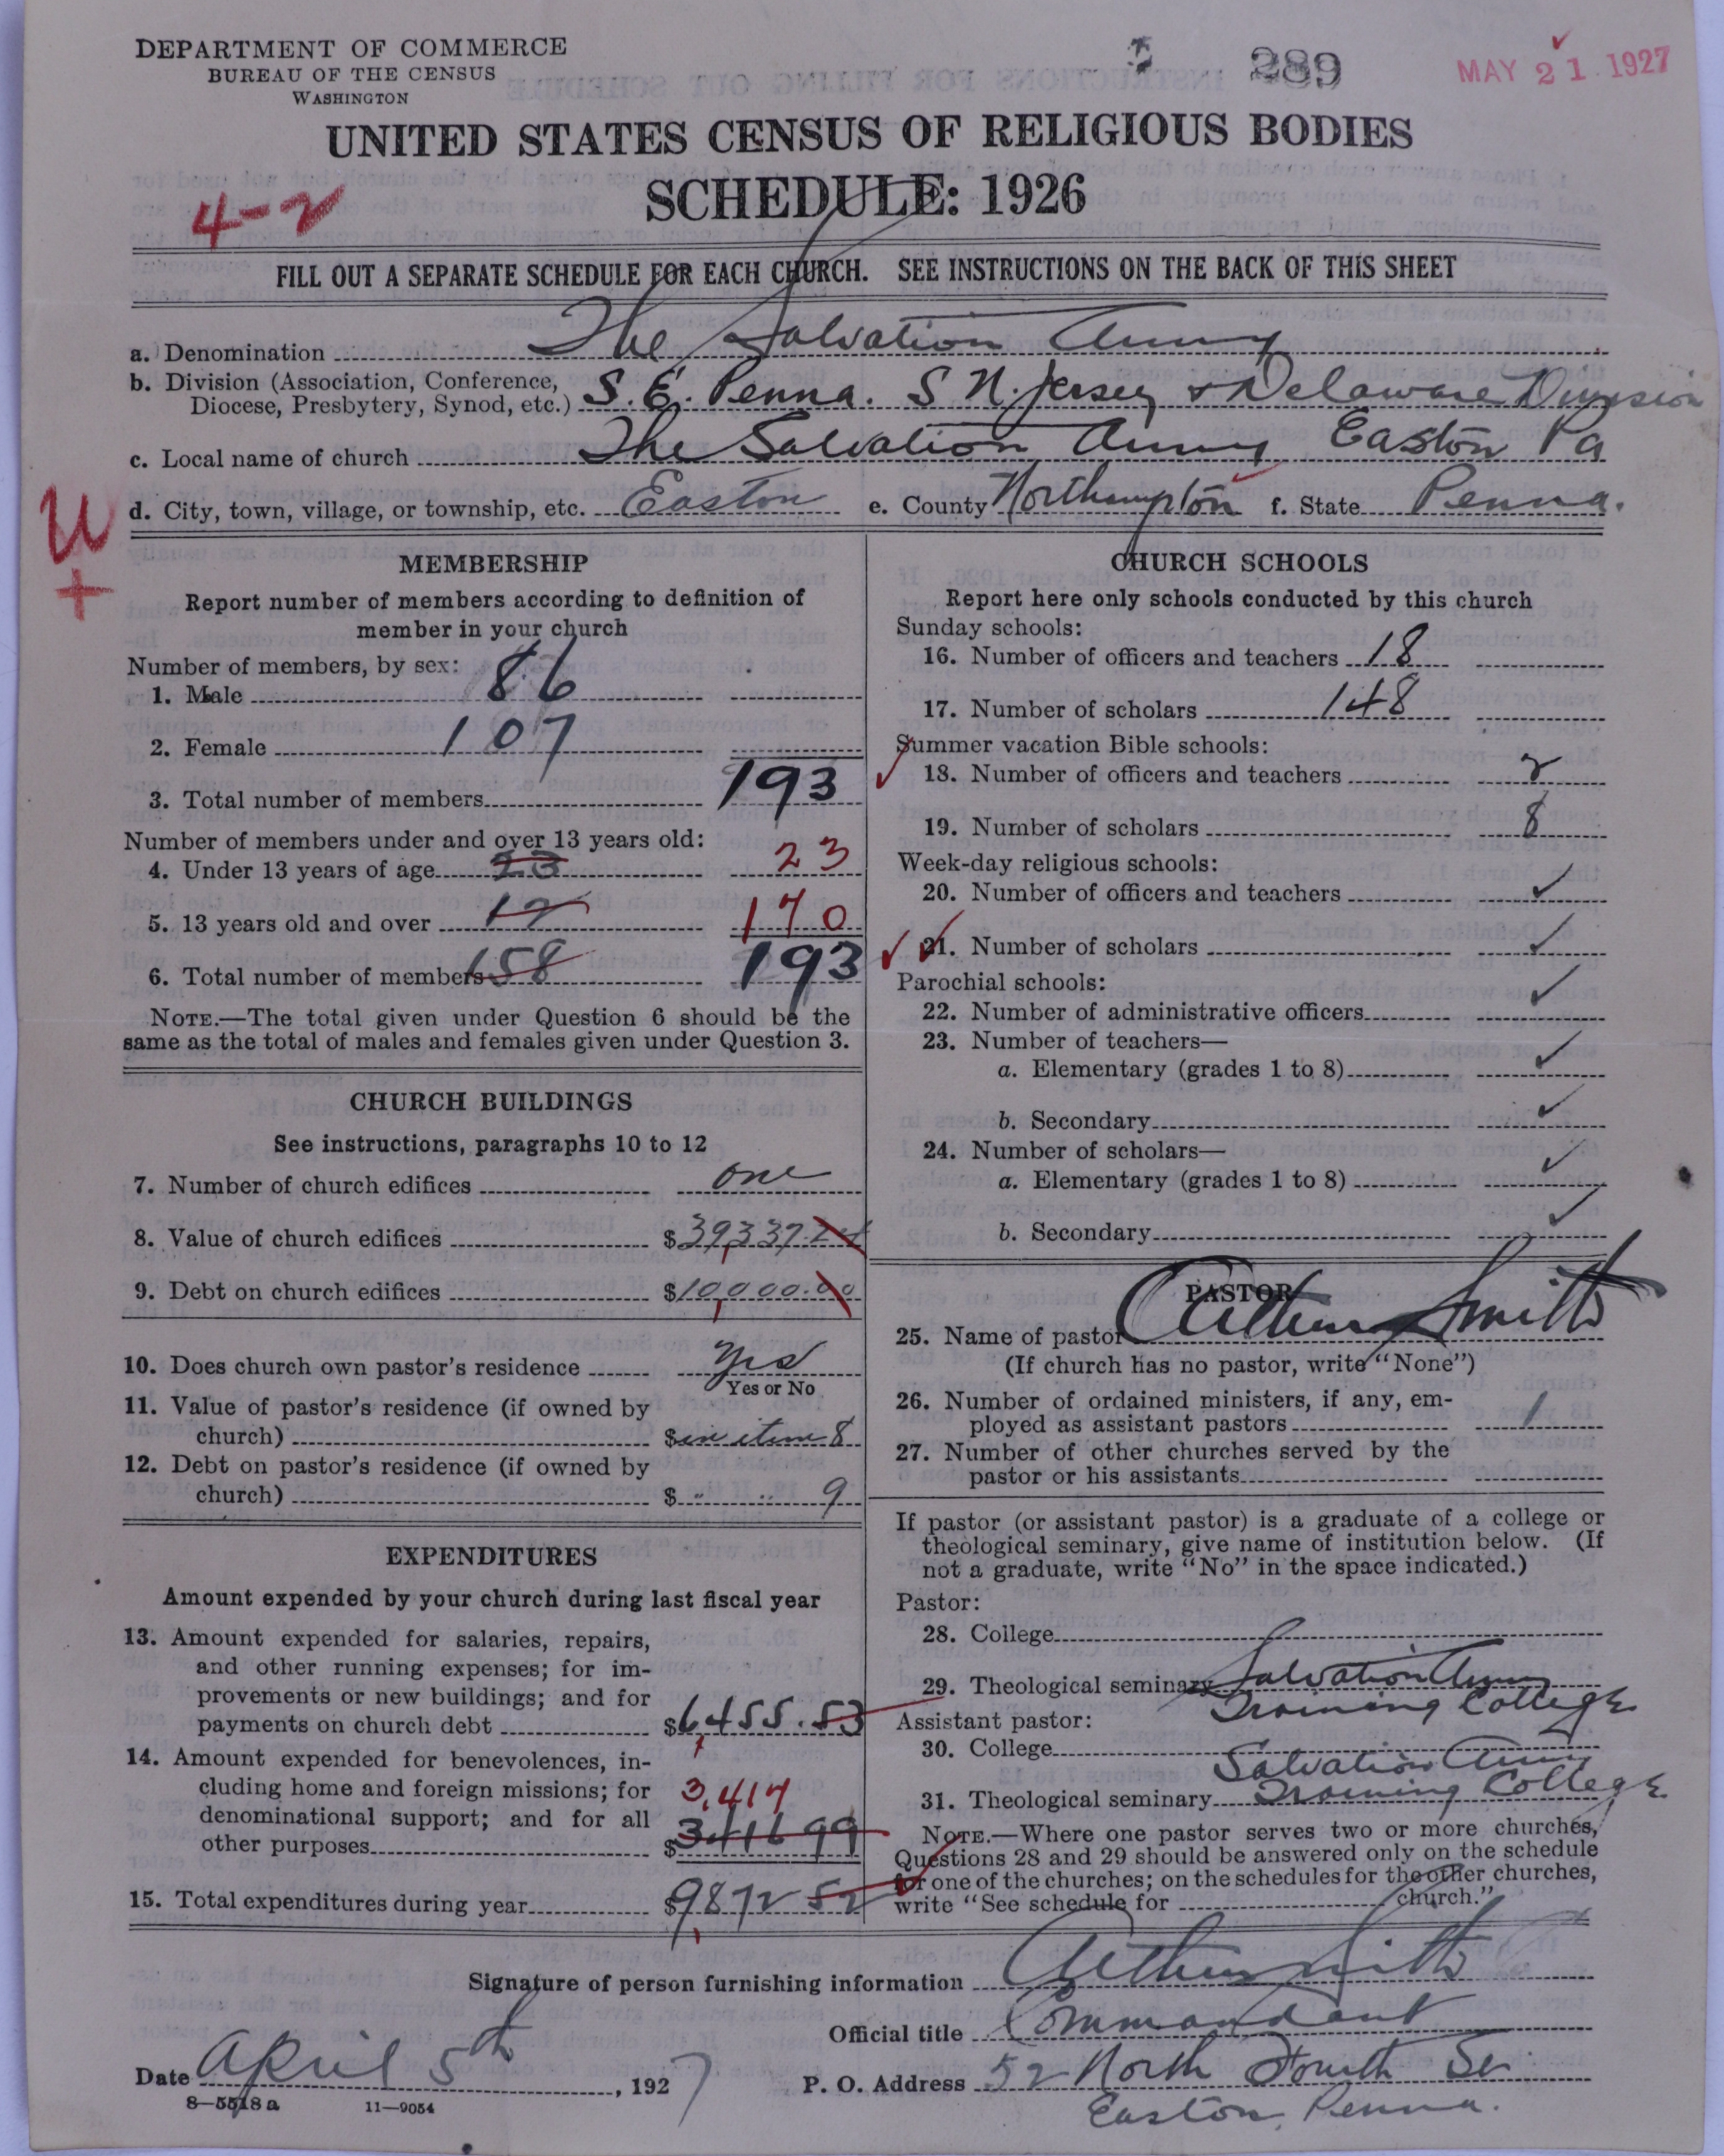 DEPARTMENT OF COMMERCE
BUREAU OF THE CENSUS
WASHINGTON
289
MAY 21 1927
UNITED STATES CENSUS OF RELIGIOUS BODIES
SCHEDULE: 1926
4-2
FILL OUT A SEPARATE SCHEDULE FOR EACH CHURCH. SEE INSTRUCTIONS ON THE BACK OF THIS SHEET
a. Denomination The Salvation Army
b. Division (Association, Conference, Diocese, Presbytery, Synod, etc.) S. E. Penna. S N. Jersey & Delaware Division
c. Local name of church The Salvation Army Easton Pa
d. City, town, village, or township, etc. Easton e. County Northampton f. State Penna.
U
+
MEMBERSHIP
Report number of members according to definition of
member in your church
Number of members, by sex:
1. Male 86
2. Female 107
3. Total number of members 193
Number of members under and over 13 years old:
4. Under 13 years of age 23 23
5. 13 years old and over 12 170
6. Total number of members 158 193
NOTE.—The total given under Question 6 should be the
same as the total of males and females given under Question 3.
CHURCH BUILDINGS
See instructions, paragraphs 10 to 12
7. Number of church edifices one
8. Value of church edifices $39,337.24
9. Debt on church edifices $10,000.00
10. Does church own pastor's residence yes
Yes or No
11. Value of pastor's residence (if owned by
church) $ in item 8
12. Debt on pastor's residence (if owned by
church) $ " " 9
EXPENDITURES
Amount expended by your church during last fiscal year
13. Amount expended for salaries, repairs,
and other running expenses; for im-
provements or new buildings; and for
payments on church debt $6,455.53
14. Amount expended for benevolences, in-
cluding home and foreign missions; for
denominational support; and for all
3,417
other purposes $3416 99
15. Total expenditures during year $9,872 52
CHURCH SCHOOLS
Report here only schools conducted by this church
Sunday schools:
16. Number of officers and teachers 18
17. Number of scholars 148
Summer vacation Bible schools:
18. Number of officers and teachers 2
19. Number of scholars 8
Week-day religious schools:
20. Number of officers and teachers ✓
21. Number of scholars ✓
Parochial schools:
22. Number of administrative officers ✓
23. Number of teachers—
a. Elementary (grades 1 to 8) ✓
b. Secondary ✓
24. Number of scholars—
a. Elementary (grades 1 to 8) ✓
b. Secondary ✓
PASTOR
25. Name of pastor Arthur Smith
(If church has no pastor, write "None")
26. Number of ordained ministers, if any, em-
ployed as assistant pastors 1
27. Number of other churches served by the
pastor or his assistants
If pastor (or assistant pastor) is a graduate of a college or
theological seminary, give name of institution below. (If
not a graduate, write "No" in the space indicated.)
Pastor:
28. College
29. Theological seminary Salvation Army
Training College
Assistant pastor:
30. College
Salvation Army
31. Theological seminary Training College
NOTE.—Where one pastor serves two or more churches,
Questions 28 and 29 should be answered only on the schedule
for one of the churches; on the schedules for the other churches,
write "See schedule for church."
Signature of person furnishing information Arthur Smith
Official title Commandant
Date April 5th, 1927 P. O. Address 52 North Fourth St.
Easton, Penna.
8—5518a 11—9054